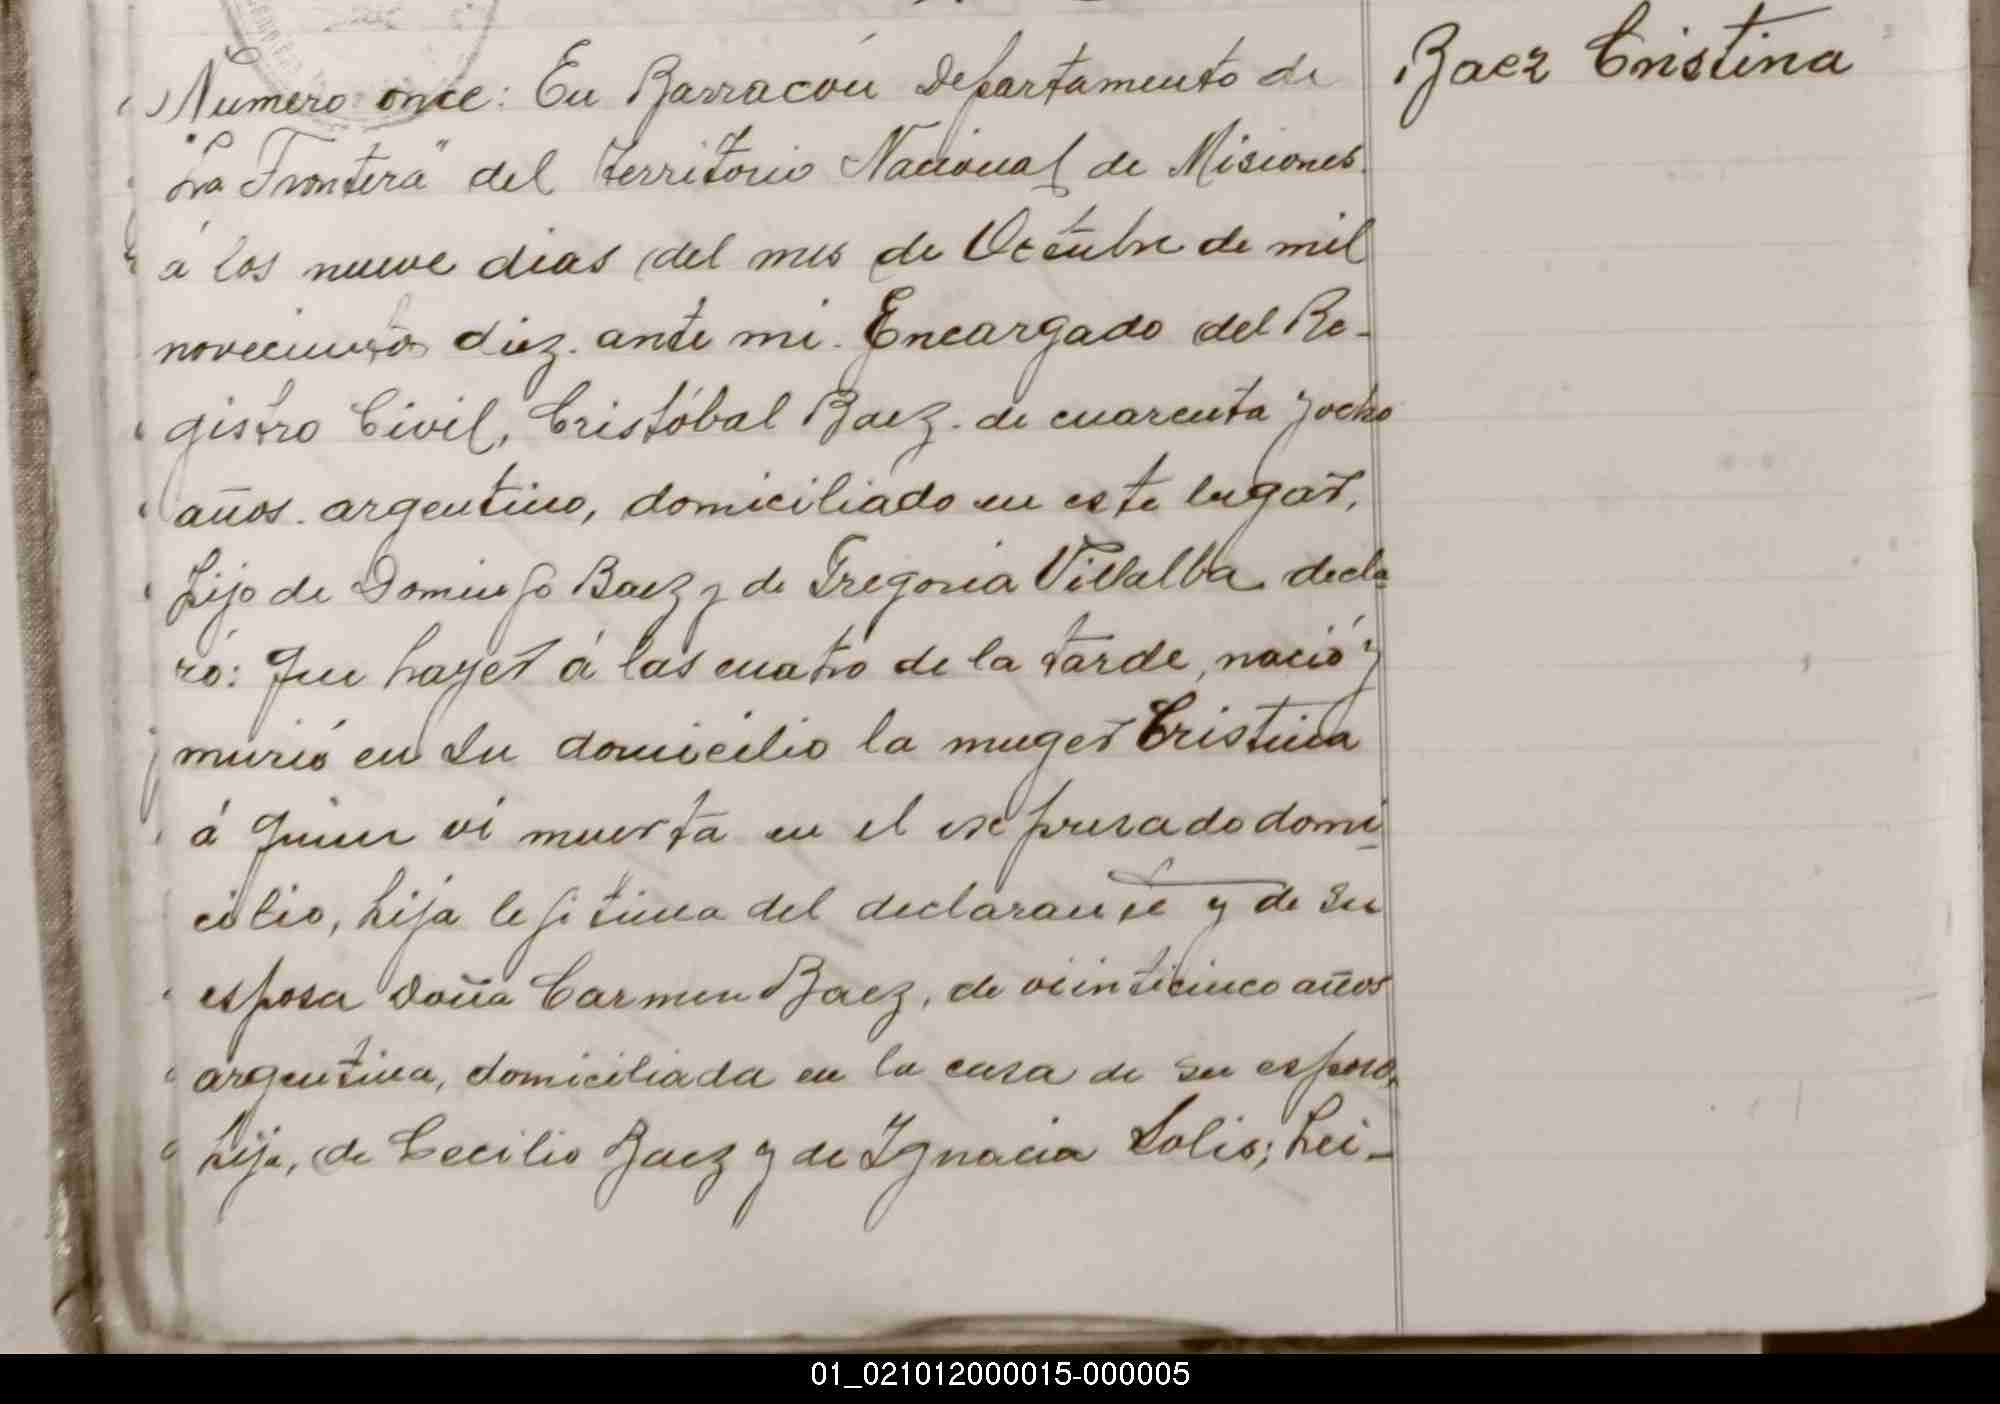 Baez Cristina
Numero once: En Barracón Departamento de
"La Frontera" del territorio Nacional de Misiones.
á los nueve dias del mes de Octubre de mil
novecientos diez. ante mi. Encargado del Re-
gistro Civil, Cristóbal Baez. de cuarenta y ocho
años. argentino, domiciliado en este lugar,
hijo de Domingo Baez y de Gregoria Villalba decla-
ró: Que hayer á las cuatro de la tarde, nació y
murió en su domicilio la muger Cristina
á quien vi muerta en el expresado domi-
cilio, hija legitima del declarante y de su
esposa doña Carmen Baez, de veinticinco años
argentina, domiciliada en la casa de su esposo,
hija, de Cecilio Baez y de Ignacia Solis; Lei-
01_021012000015-000005